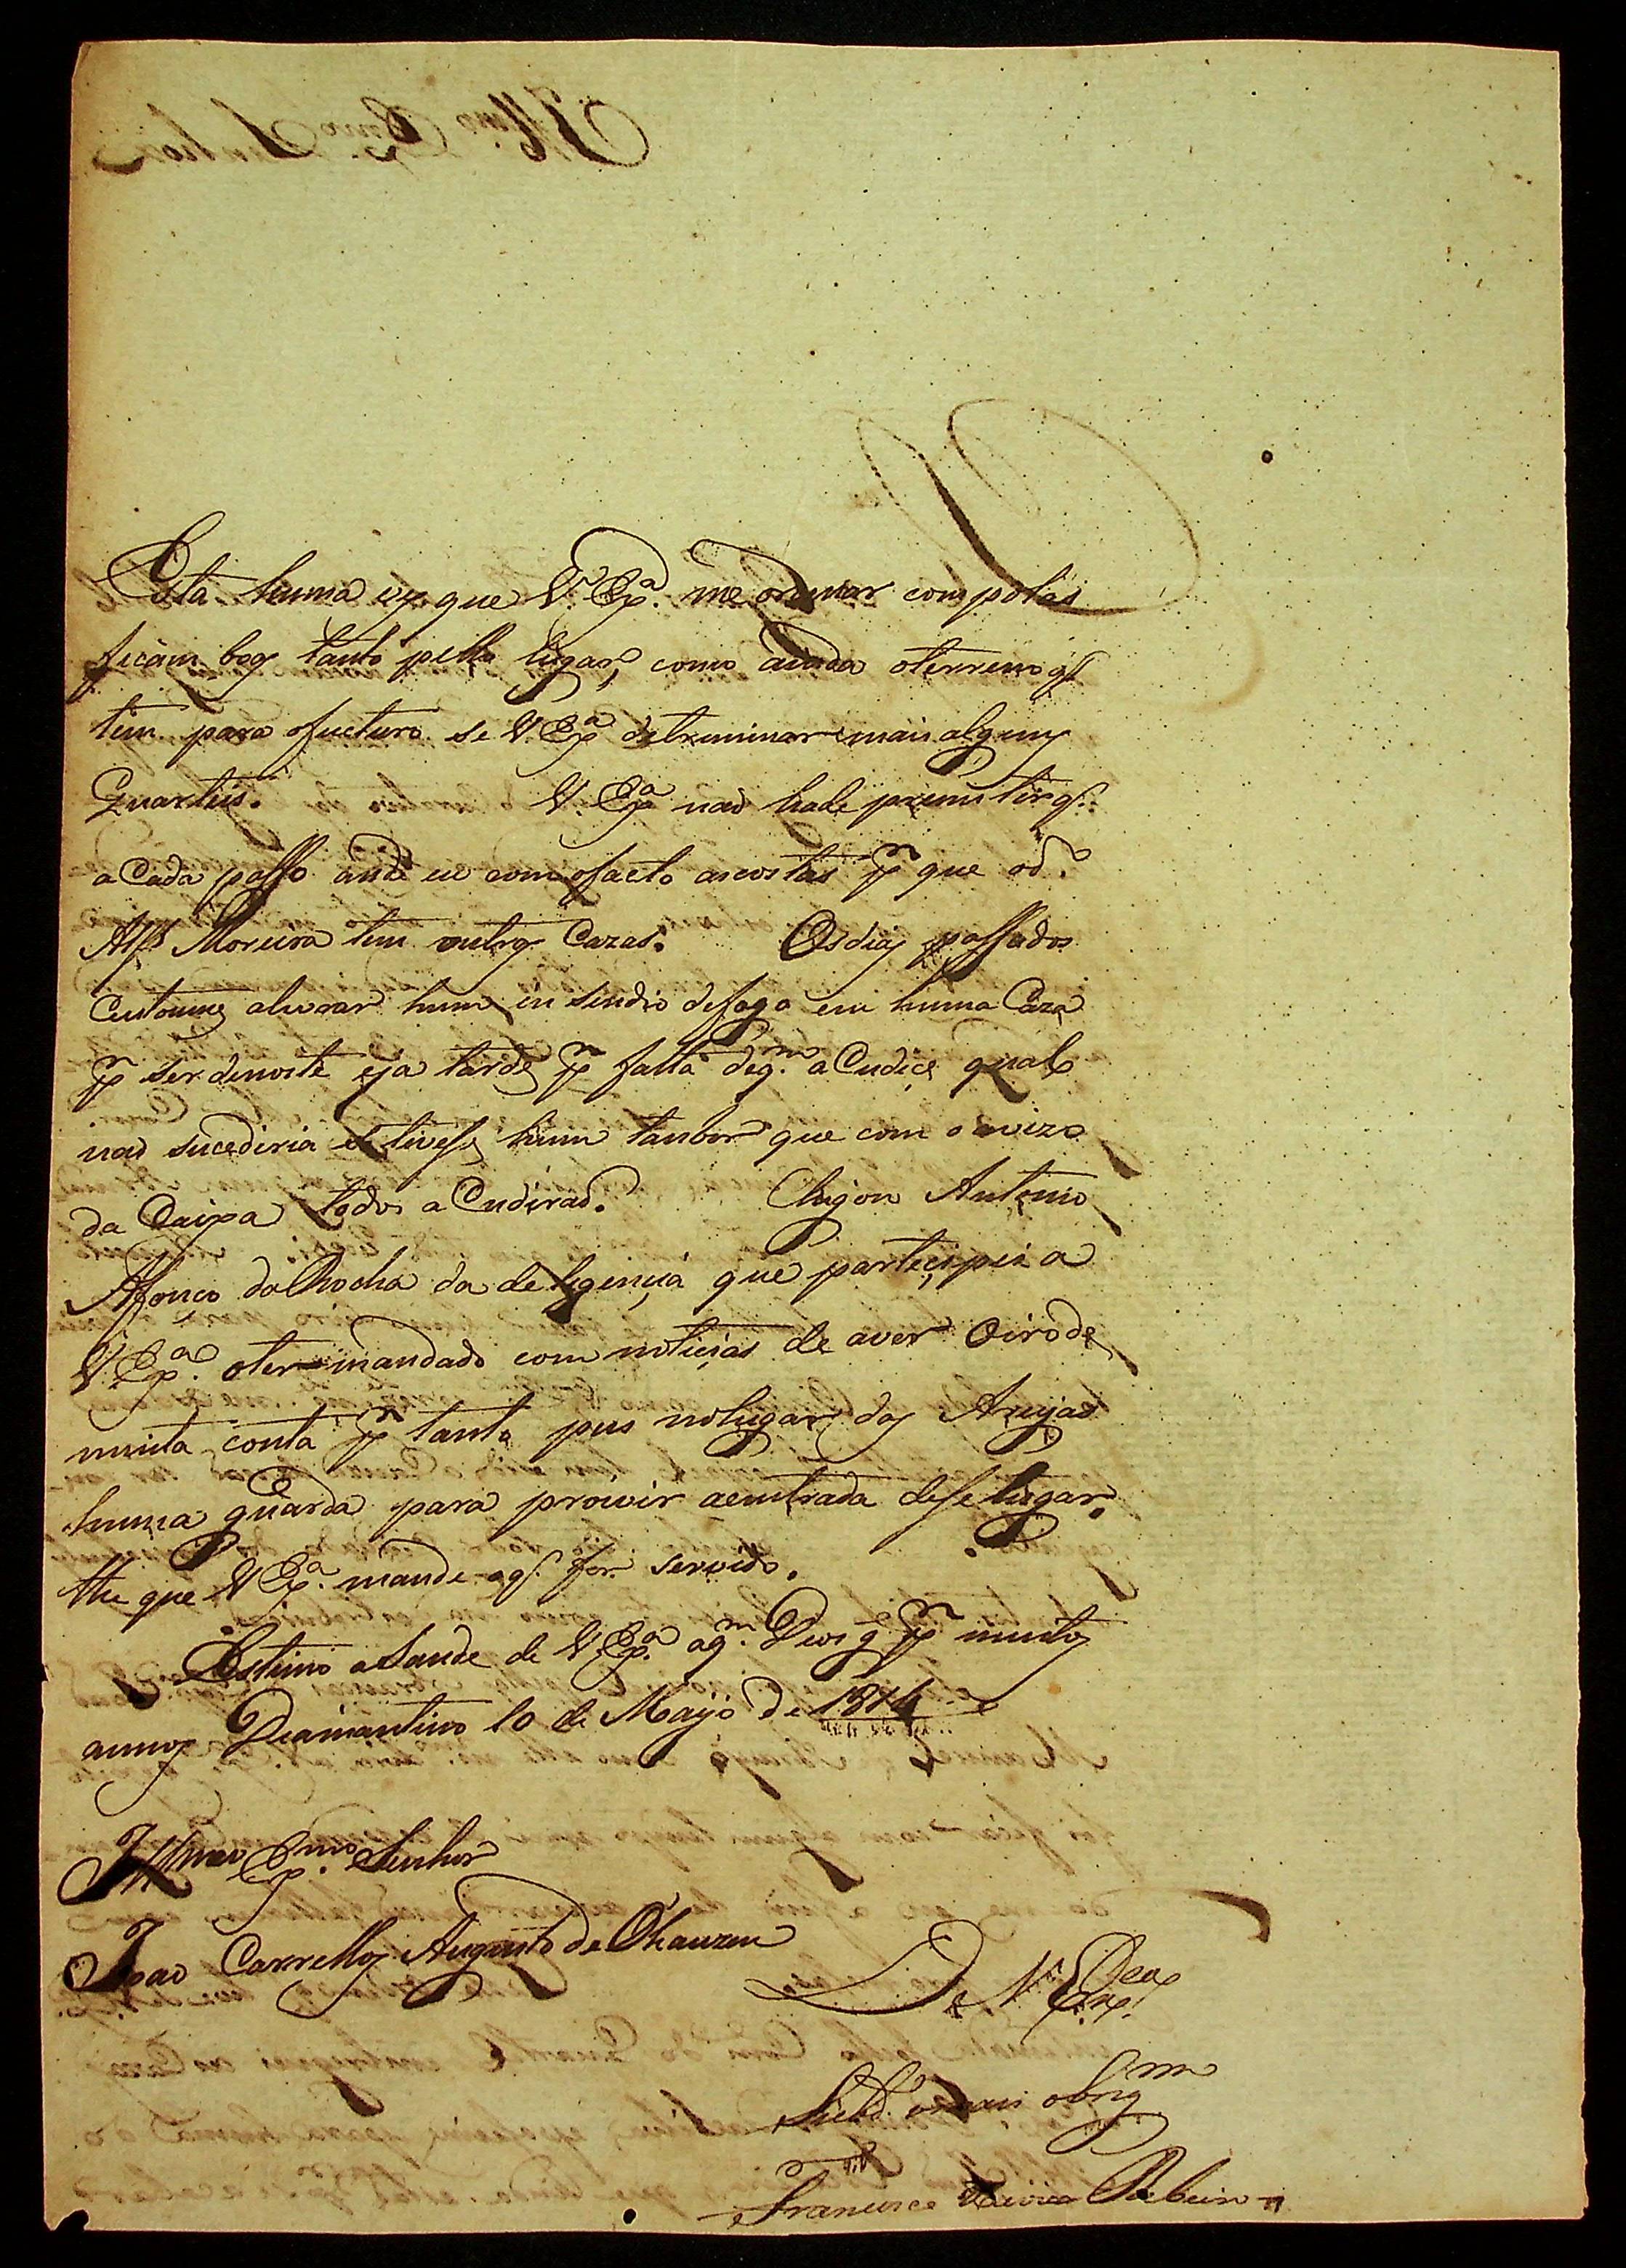 Esta huma vez que V. Exª. me ordenar compolas
ficam boas tanto pello lugar, como ainda oterreno q
tem para ofucturo se V. Exª detreminar mais alguns
Quarteis. V. Exª nao hade premitir q.
a Cada passo ande eu com ofacto as costas pr que od.º
Alfs Moreira tem outras Cazas. Os dias passados
Custoume alivrar hum insindio defogo em huma Caza
pr ser denoite eja tarde pr falta deq.m aCudice qual
nao sucediria se tivese hum tanbor que com o avizo
da Caixa todos aCudirao. Chegou Antonio
Afonço da Rocha da deligencia que partecipei a
V. Exª. oter mandado com noticias de aver Oiro de
muita conta pr tanto pus nolugar das Areyas
huma guarda para proivir aentrada dese lugar.
the que V Exª. mande oq. for servido.
Estimo aSaude de V. Exª. aq.m Deos g pr muitos
annos Deamantino 10 de Mayo de 1814
Illmo Exmo. Senhor
Joao Carrellos Augusto de Ohauzen
De V. Exª
Subd. omais obrigmo
Francisco Xavier Ribeiro